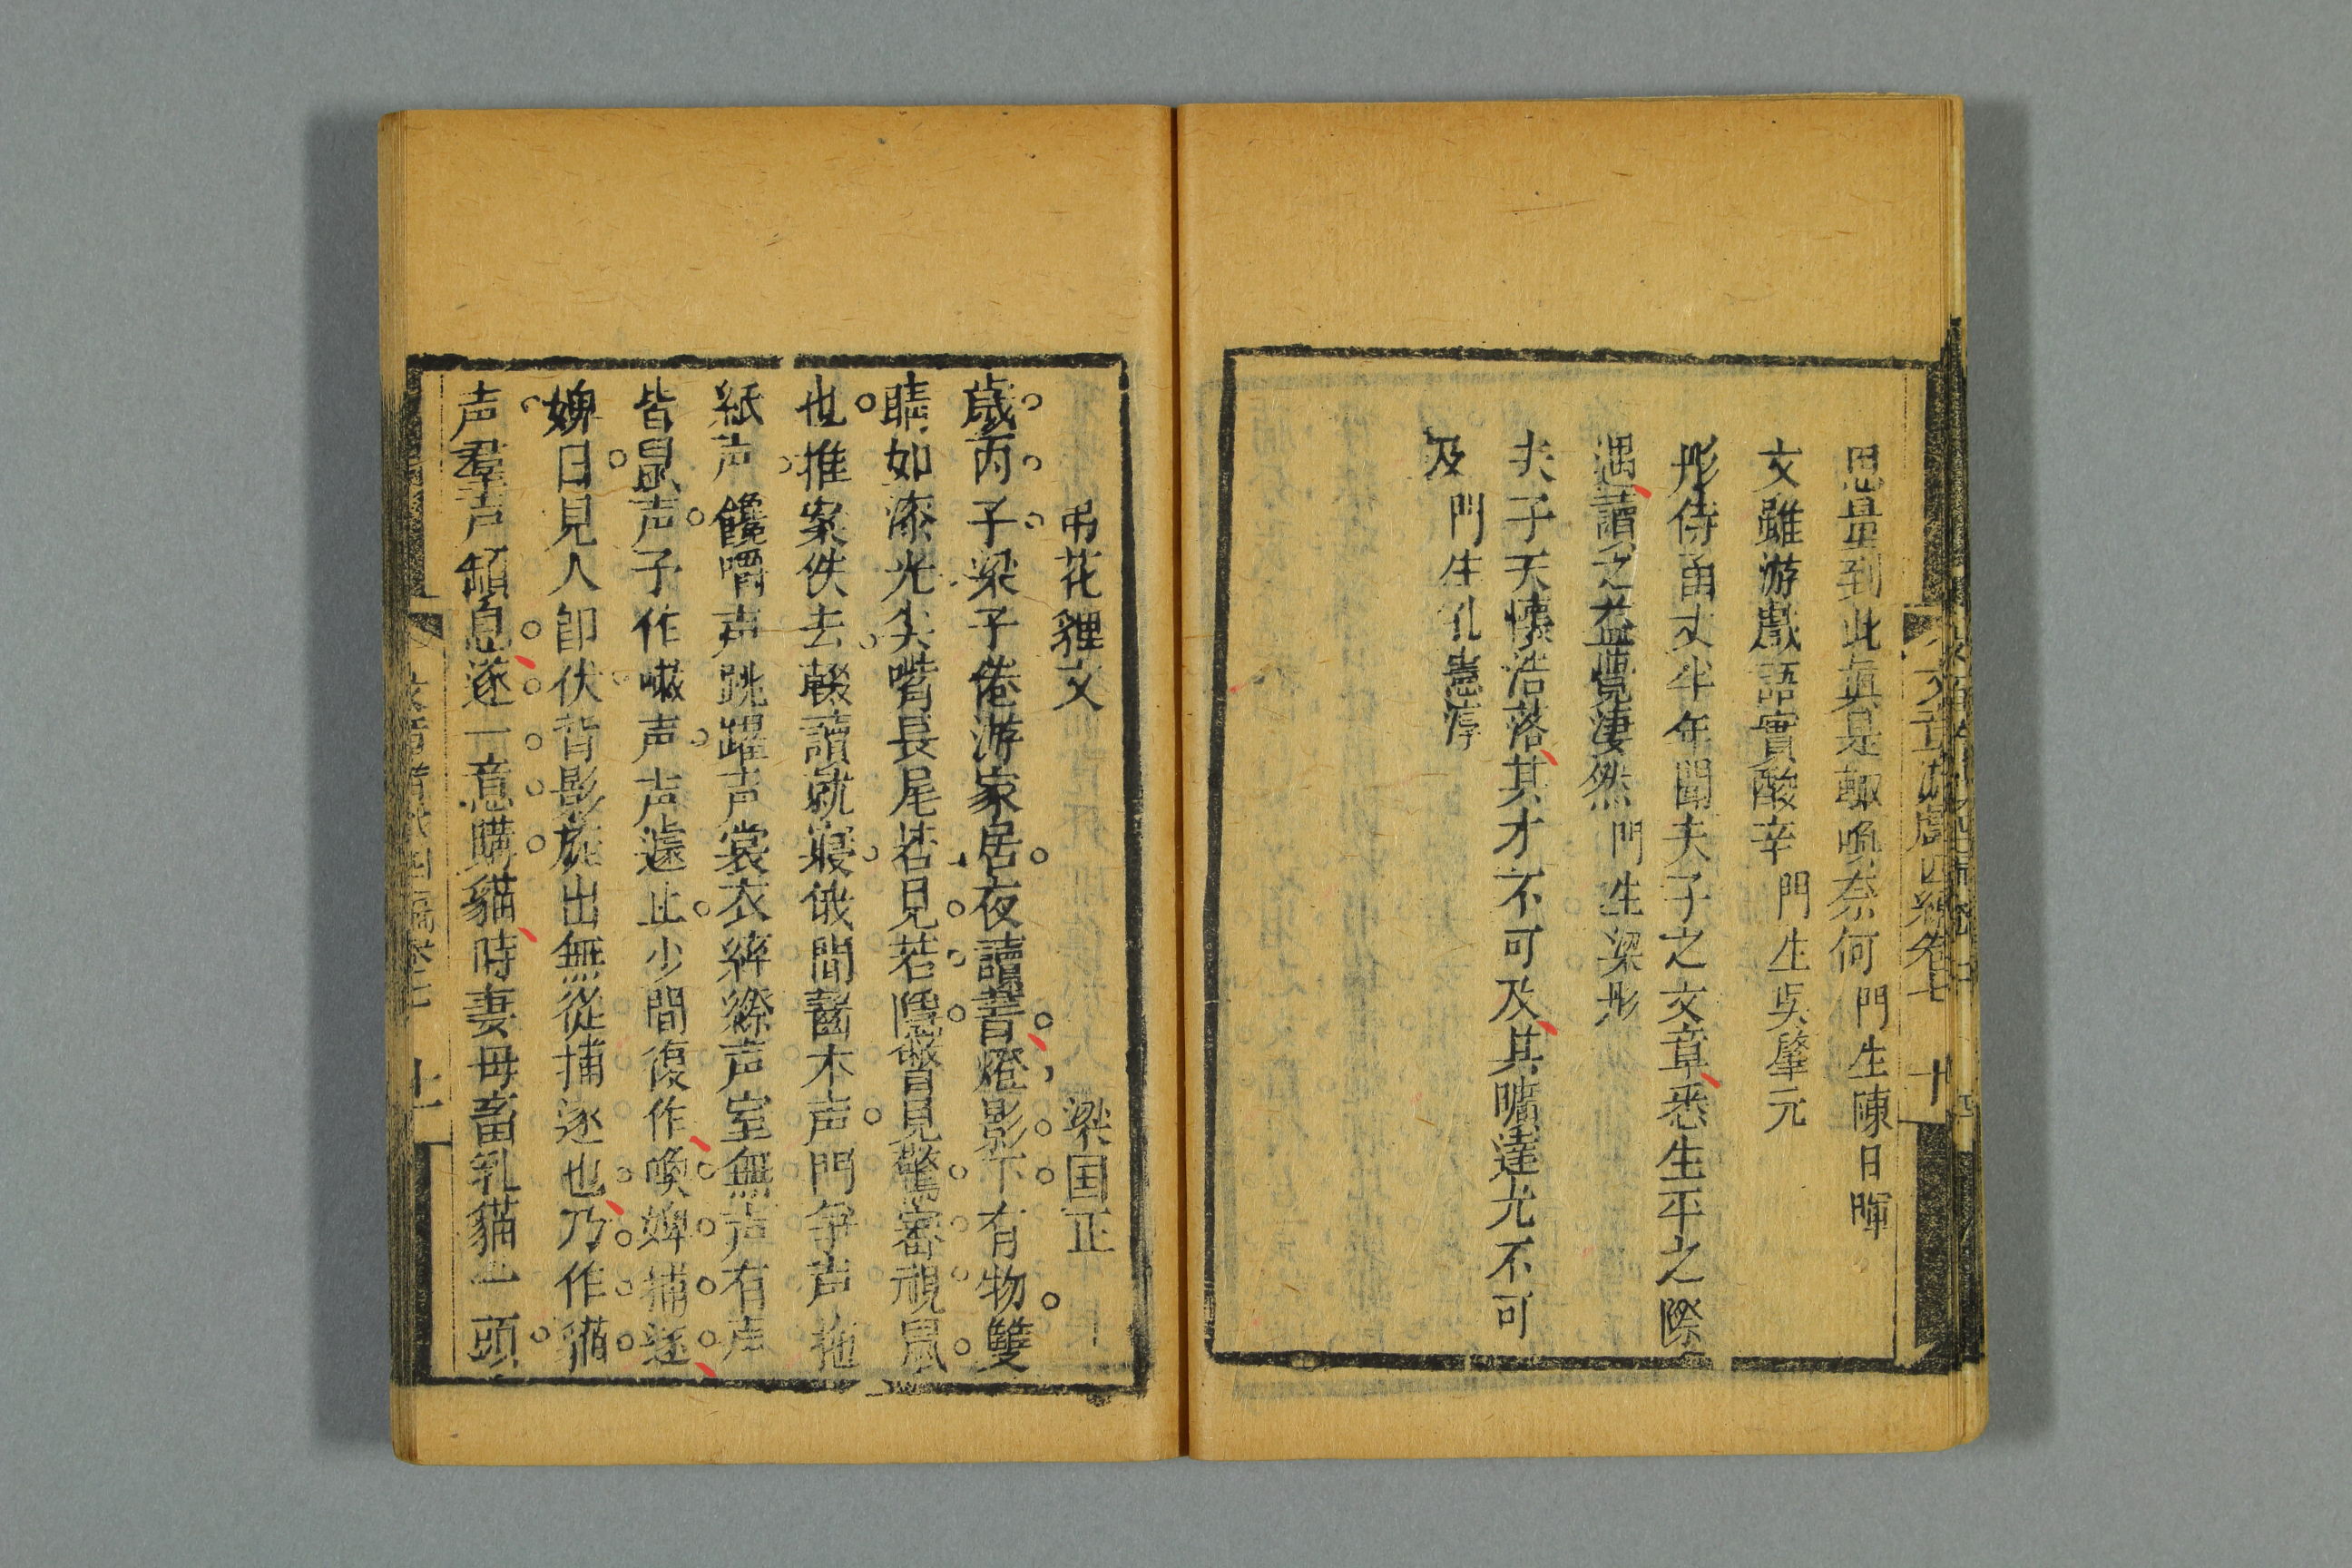 思量到此眞是輙喚奈何 門生陳日暉
文雖游戲語實酸辛 門生吳肇元
彤侍函丈半年聞夫子之文章悉生平之際
遇讀之益覺淒然 門生梁彤
夫子天懷浩落其才不可及其曠達尤不可
及 門生孔憲淳
十
弔花貍文 梁国正
歲丙子梁子倦游家居夜讀書燈影下有物雙
睛如漆光尖嘴長尾若見若隱瞥見驚審視鼠
也推案佚去輟讀就寢俄間齧木声門争声拖
紙声饞嚼声跳躍声裳衣綷縩声室無声有声
皆鼠声予作嚇声声遠止少間復作喚婢捕逐
婢曰見人卽伏背影旋出無從捕逐也乃作猫
声羣声頓息遂一意購貓時妻母畜乳貓一頭
十一